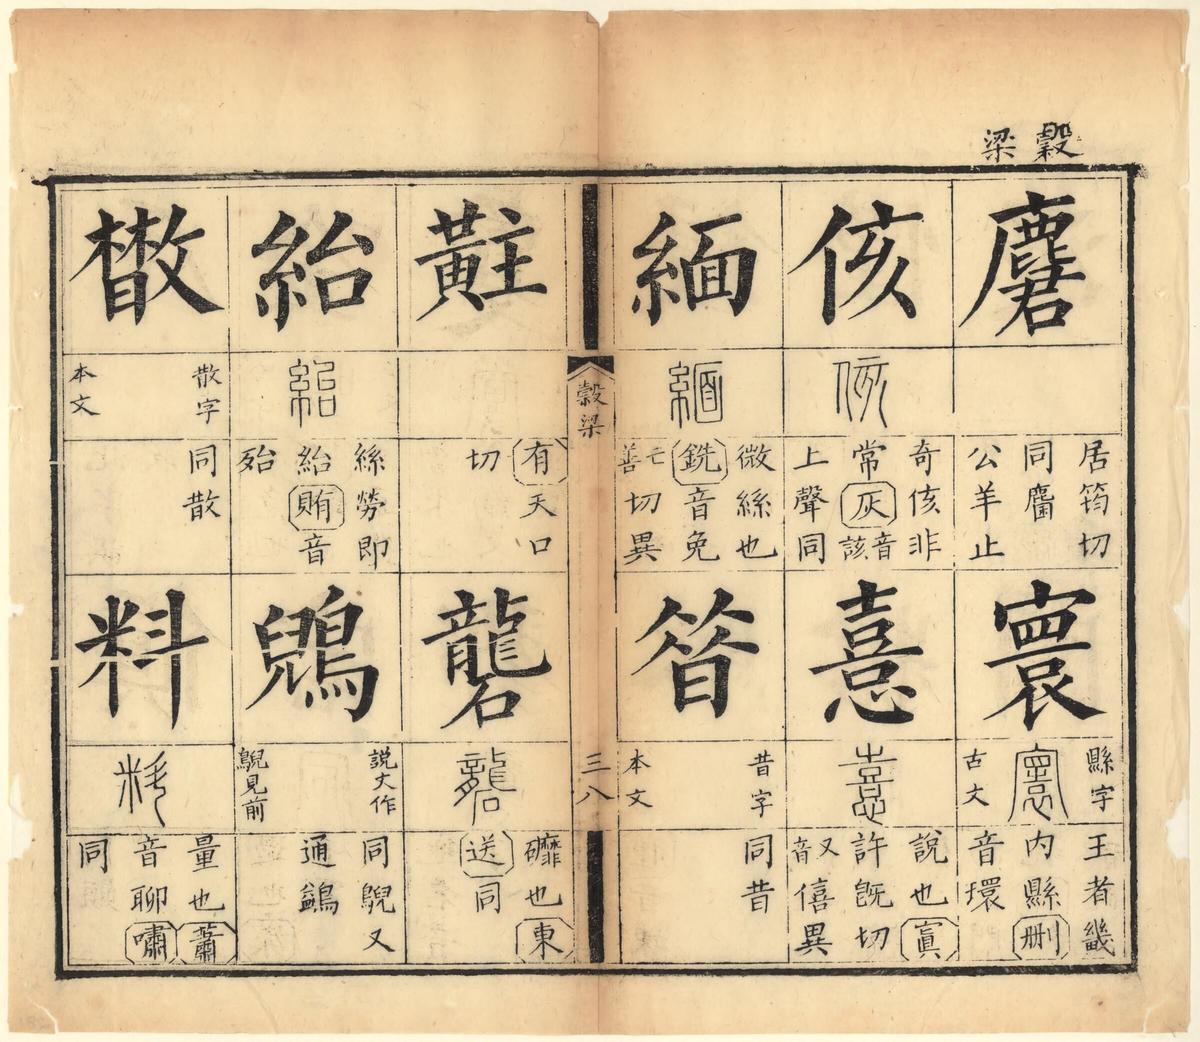 穀
梁
麏
居筠切
同麕
公羊止
侅
侅
奇侅非
常灰音該
上聲同
緬
緬
微絲也
銑音免
善切異
寰
縣字
寰
古文
王者畿
内縣刪
音環
憙
憙
說也寘
許旣切
又音僖異
㫺
昔字
本文
同昔
穀梁
三八
黈
有天口
切
紿
紿
絲勞即
紿賄音
殆
散字
本文
同散
礱
礱
䃺也東
送同
鶃
説文作
鶂見前
同鶂又
通鷁
料
料
量也蕭
音聊嘯
同